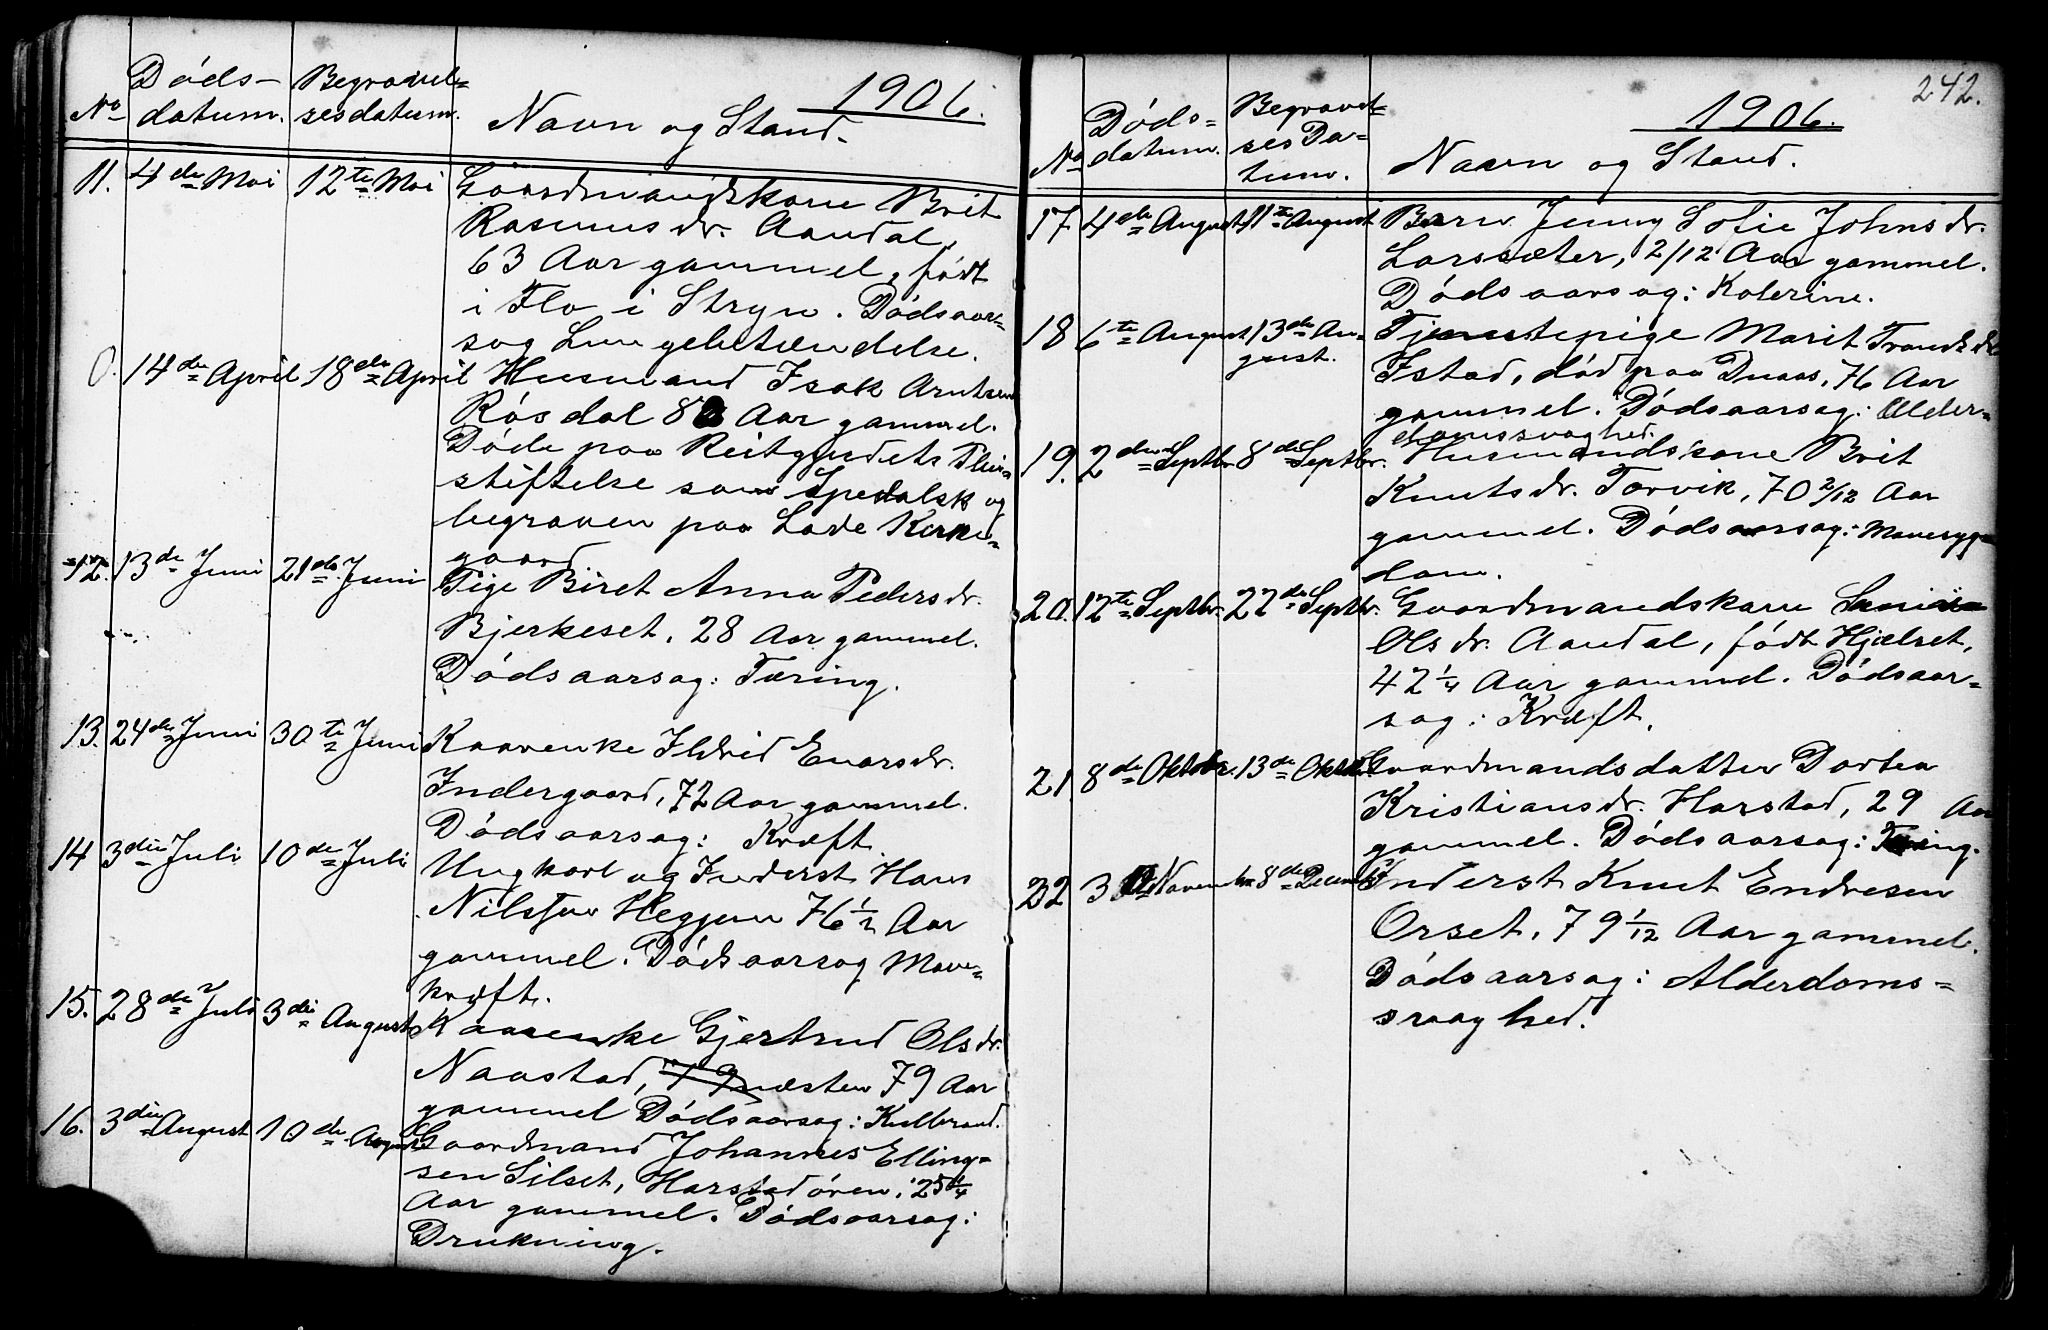 1906.
No Døds-
datum. Begravel=
sesdatum. Navn og Stand.
11. 4de Mai 12te Mai Gaardmandskone Brit
Rasmusdr. Aandal,
63 Aar gammel, født
i Flo i Stryn. Dødsaar=
sag Lungebetændelse.
0. 14de April 18de April Husmand Isak Arntsen
Røsdal 82 Aar gammel.
Døde paa Reitgjerdets Pleie
stiftelse som Spedalsk og
begraven paa Lade Kirke=
gaard
12. 13de Juni 21de Juni Pige Biret Anna Pedersdr.
Bjerkeset, 28 Aar gammel.
Dødsaarsag: Tæring.
13. 24de Juni 30te Juni Kaarenke Ildrid Evarsdr.
Indergaard, 72 Aar gammel.
Dødsaarsag: Kræft
14 3die Juli 10de Juli Ungkarl og Inderst Hans
Nilssen Hegjem 76 1/2 Aar
gammel. Dødsaarsag Mave=
kræft.
15. 28de Juli 3die August Kaarenke Gjertrud Olsdr.
Naastad, næsten 79 Aar
gammel Dødsaarsag: Kulbrand.
16. 3die August 10de August Gaardmand Johannes Elling=
sen Silset, Harstadøren, 25 1/4
Aar gammel. Dødsaarsag:
Drukning.
242.
1906.
No Døds=
datum. Begravel=
ses Da=
tum. Navn og Stand.
17 4de August 11te August Barn Jenny Sofie Johnsdr.
Larssæter, 2/12 Aar gammel.
Dødsaarsag: Katerine.
18 6te August 13de Au=
gust. Tjenestepige Marit Trondsdr
Istad, død paa Duaas, 76 Aar
gammel. Dødsaarsag: Alder=
domssvaghed.
19. 2den Septbr 8de Septbr. Husmandskone Brit
Knutsdr. Torvik, 70 2/12 Aar
gammel. Dødsaarsag: Mavesyg=
dom.
20. 12te Septbr. 22de Septbr. Gaardmandskone
Olsdr. Aandal, født Hjelset,
42 1/4 Aar gammel. Dødsaar=
sag: Kræft.
21. 8de Oktobr. 13de Oktobr Gaardmandsdatter Dortea
Kristiansdr. Harstad, 29 Aar
gammel. Dødsaarsag: Tæring.
22 30 November 8de December Inderst Knut Endresen
Orset, 79 1/12 Aar gammel.
Dødsaarsag: Alderdoms=
svaghed.